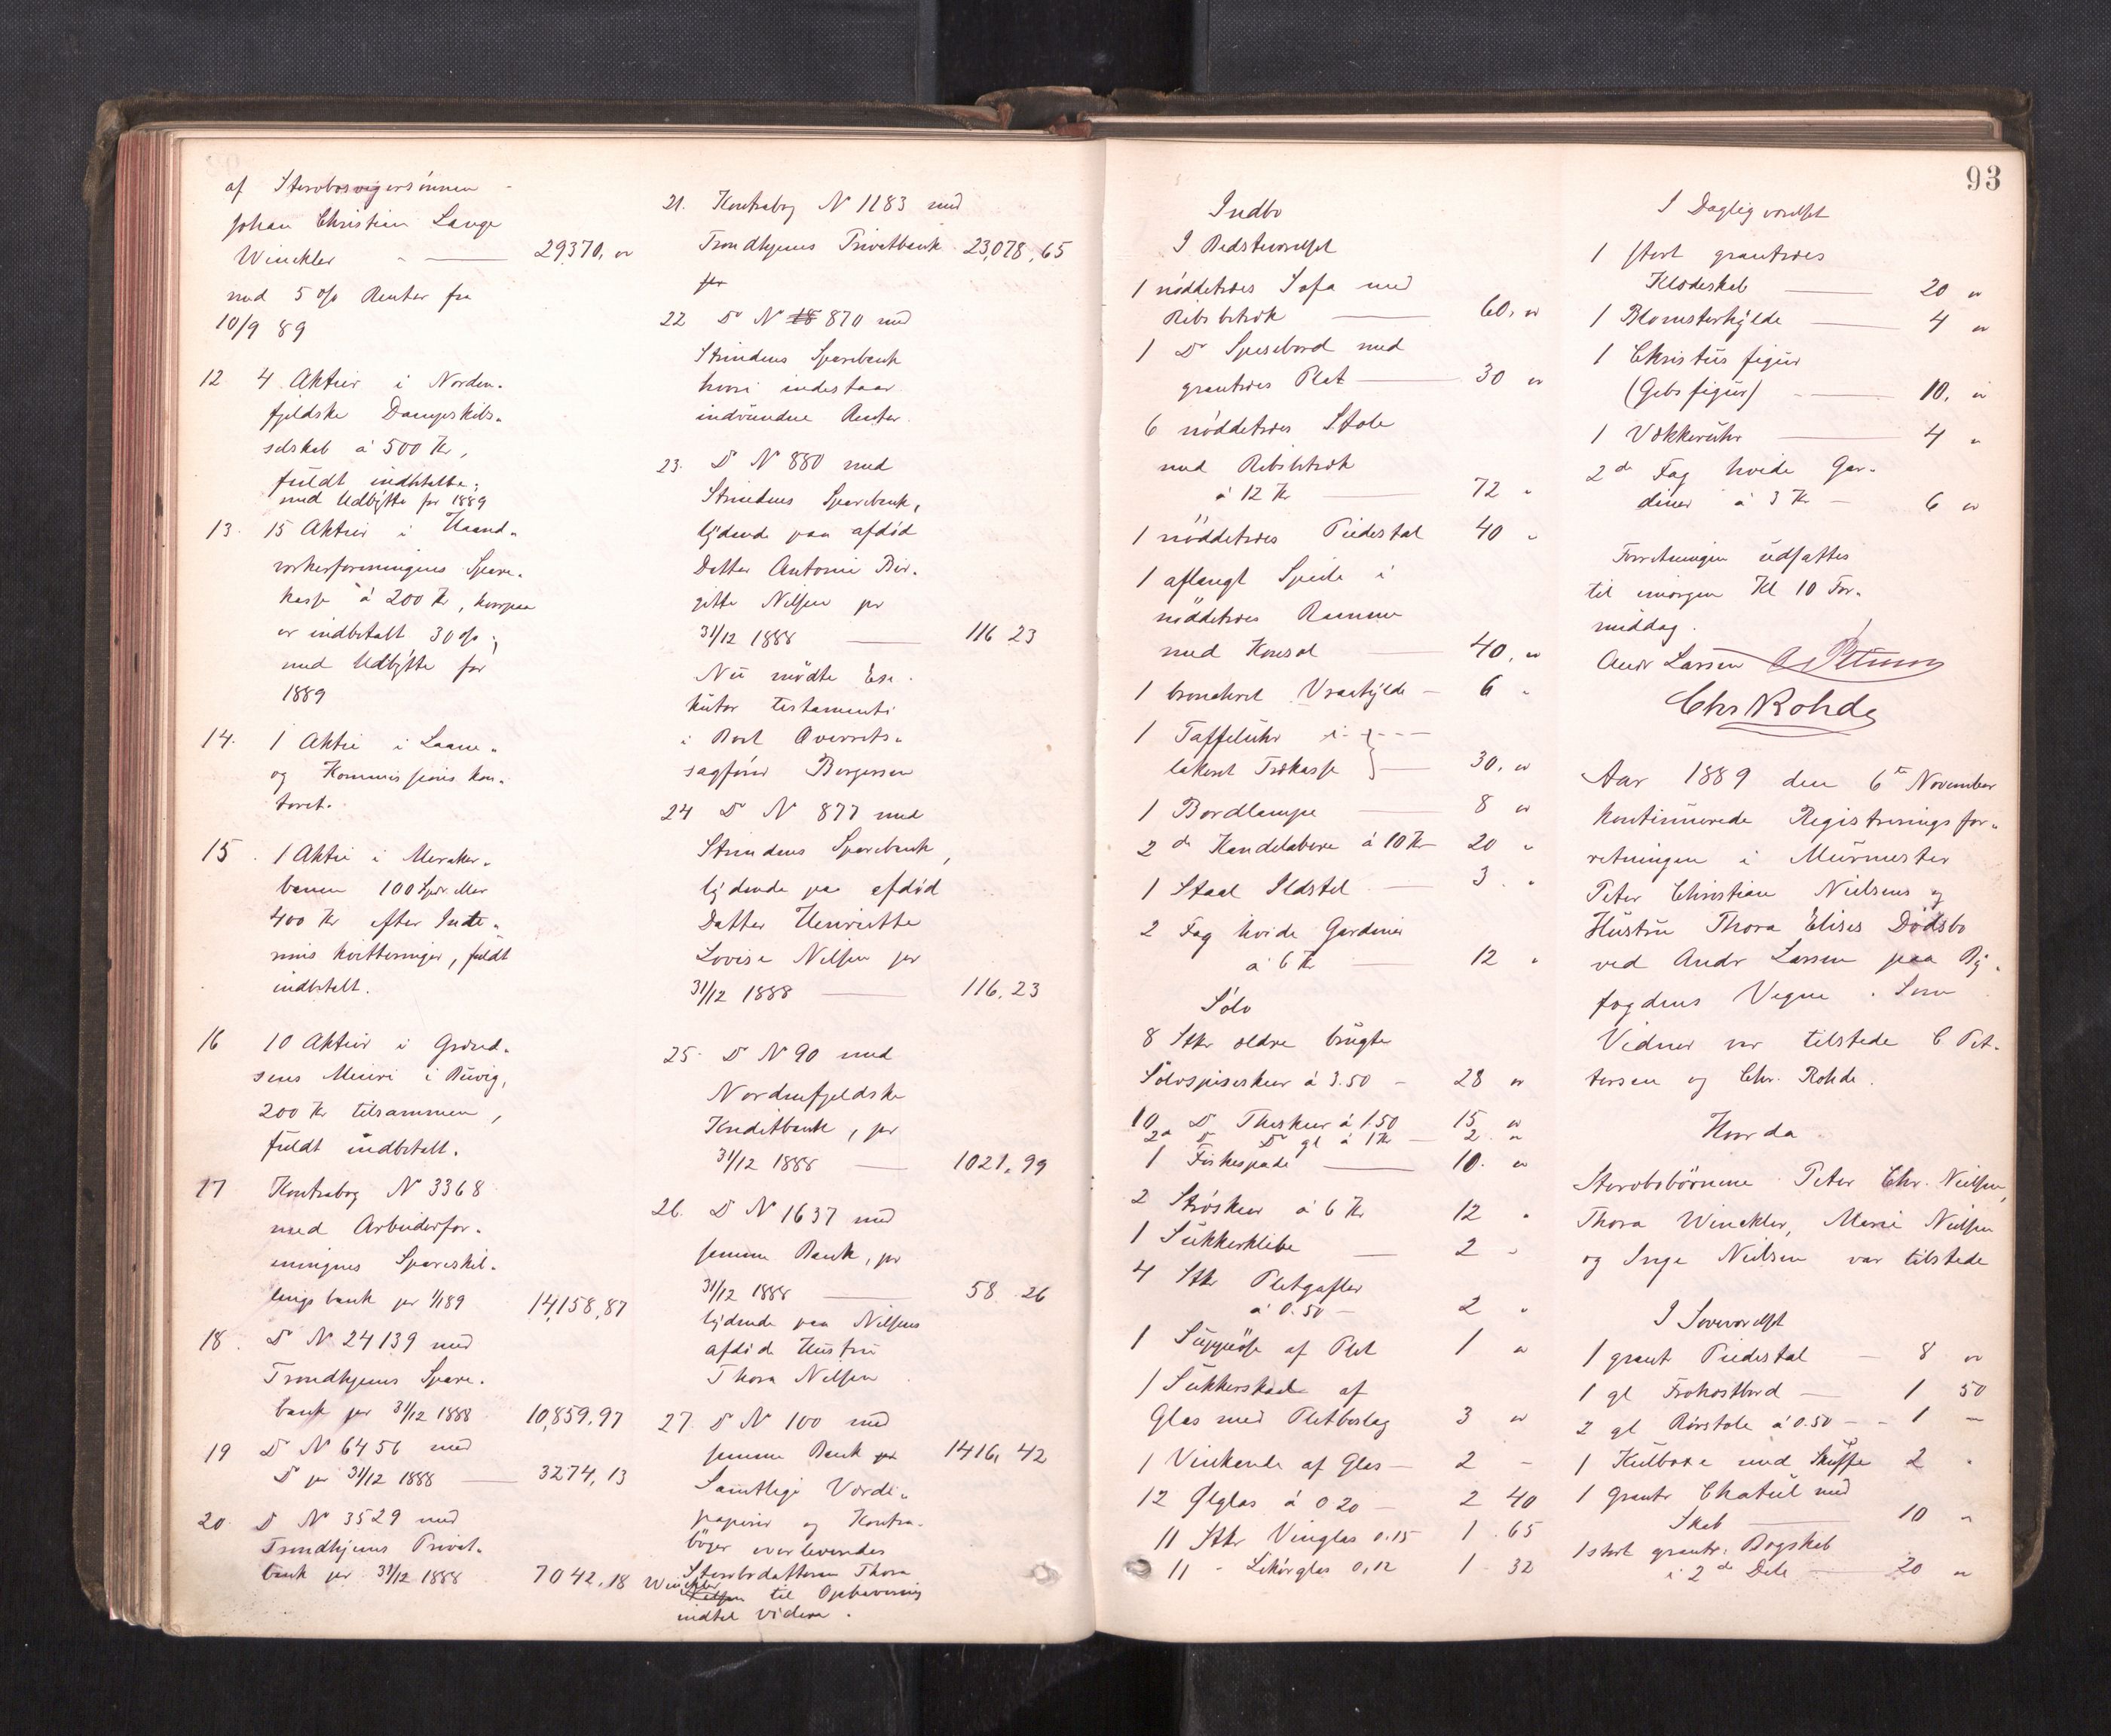 af Stervbosvigersönnen
Johan Christian Lange
Winckler 29370, "
med 5 % Renter fra
10/9 89
12 4 Aktier i Norden-
fjeldske Dampskibs-
selskab á 500 Kr,
fuldt indbetalte;
med Udbÿtte for 1889
13. 15 Aktier i Haand-
værkerforeningens Spare-
kasse á 200 Kr, hvorpaa
er indbetalt 30 %;
med Udbÿtte for
1889
14. 1 Aktie i Laane-
og Kommissions kon-
toret.
15. 1 Aktie i Meraker-
banen 100 Spdr eller
400 Kr efter Inte-
rims kvitteringer, fuldt
indbetalt.
16 10 Aktier i
Meieri i Buvig,
200 Kr tilsammen,
fuldt indbetalt.
17 Kontrabog N 3368
med Arbeiderfor-
eningens Spareskil-
lingsbank pr 1/1 89 14,158,87
18. Do N 24139 med
Trondhjems Spare-
bank pr 31/12 1888 10,859,97
19 Do N 6456 med
Do pr 31/12 1888 3274,13
20. Do N 3529 med
Trondhjems Privat-
bank pr 31/12 1888 7042,18
21. Kontrabog N 1183 med
Trondhjems Privatbank 23,078,65
pr
22 Do N 18 870 med
Strindens Sparebank
hvori indestaar
indvundne Renter.
23. Do N 880 med
Strindens Sparebank,
lÿdende paa afdöd
Datter Antonie Bir-
gitte Nilsen pr
31/12 1888 116 23
Nu mödte Exe-
kutor testamenti
i Boet Overrets-
sagförer Borgersen
24 Do N 877 med
Strindens Sparebank,
lÿdende paa afdöd
Datter Henriette
Lovise Nilsen pr
31/12 1888 116,23
25. Do N 90 med
Nordenfjeldske
Kreditbank, pr
31/12 1888 1021,99
26. Do N 1637 med
samme Bank, pr
31/12 1888 58 26
lÿdende paa Nilsens
afdöde Hustru
Thora Nilsen
27. Do N 100 med
samme Bank pr 1416,42
Samtlige Værdi-
papirer og Kontra-
böger overleveredes
Stervbodatteren Thora
Winckler Nilsen til Opbevaring
indtil videre.
93
Indbo
I Bedsteværelset
1 nöddetræes Sofa med
Ribs betræk 60, "
1 Do Spisebord med
grantræes Plat 30 "
6 nöddetræes Stole
med Ribsbetræk
á 12 Kr 72 "
1 nöddetræes Piedestal 40 "
1 aflangt Speile i
nöddetræes Ramme
med Konsol 40, "
1 bronceret Vraahÿlde 6 "
1 Taffeluhr i
lakeret Trækasse 30, "
1 Bordlampe 8 "
2 de Kandelabere á 10 Kr 20 "
1 Staal Ildstel 3 "
2 Fag hvide Gardiner
á 6 Kr 12 "
Sölv
8 Stkr ældre brugte
Sölvspiseskeer á 3.50 28 "
10 Do Theskeer á 1.50 15 "
2 Do Do gl á 1 Kr 2 "
1 Fiskespade 10. "
2 Ströskeer á 6 Kr 12 "
1 Sukkerklibe 2 "
4 Stkr Pletgafler
á 0.50 2 "
1 Suppeöse af Plet 1 "
1 Sukkerskaal af
Glas med Pletbeslag 3 "
1 Vinkande af Glas 2 -
12 Ölglas á 0 20 2 40
11 Stkr Vinglas 0.15 1.65
11 " Likörglas 0,12 1 32
I Dagligværelset
1 stort grantræes
Klædeskab 20 "
1 Blomsterhÿlde 4 "
1 Christus figur
(Gibsfigur) 10, "
1 Vækkeruhr 4 "
2 de Fag hvide Gar-
diner á 3 Kr 6 "
Forretningen udsattes
til imorgen Kl 10 For-
middag.
Andr Larsen
Chr Rohde
Aar 1889 den 6te November
kontinuerede Registreringsfor-
retningen i Murmester
Peter Christian Nielsens og
Hustru Thora Elises Dödsbo
ved Andr Larsen paa Bÿ-
fogdens Vegne. Som
Vidner var tilstede C Pet-
tersen og Chr. Rohde.
Hvorda
Stervbobörnene Peter Chr. Nielsen,
Thora Winckler, Marie Nielsen
og Inga Nielsen var tilstede
I Soveværelset
1 grant Piedestal 8 "
1 gl Frokostbord 1 50
2 gl Rörstole á 0.50 1 -
1 Kulboxe med Skuffe 2 "
1 grantr Chatul med
Skab 10 "
1 stort grantr. Bogskab
i 2 de Dele 20 "